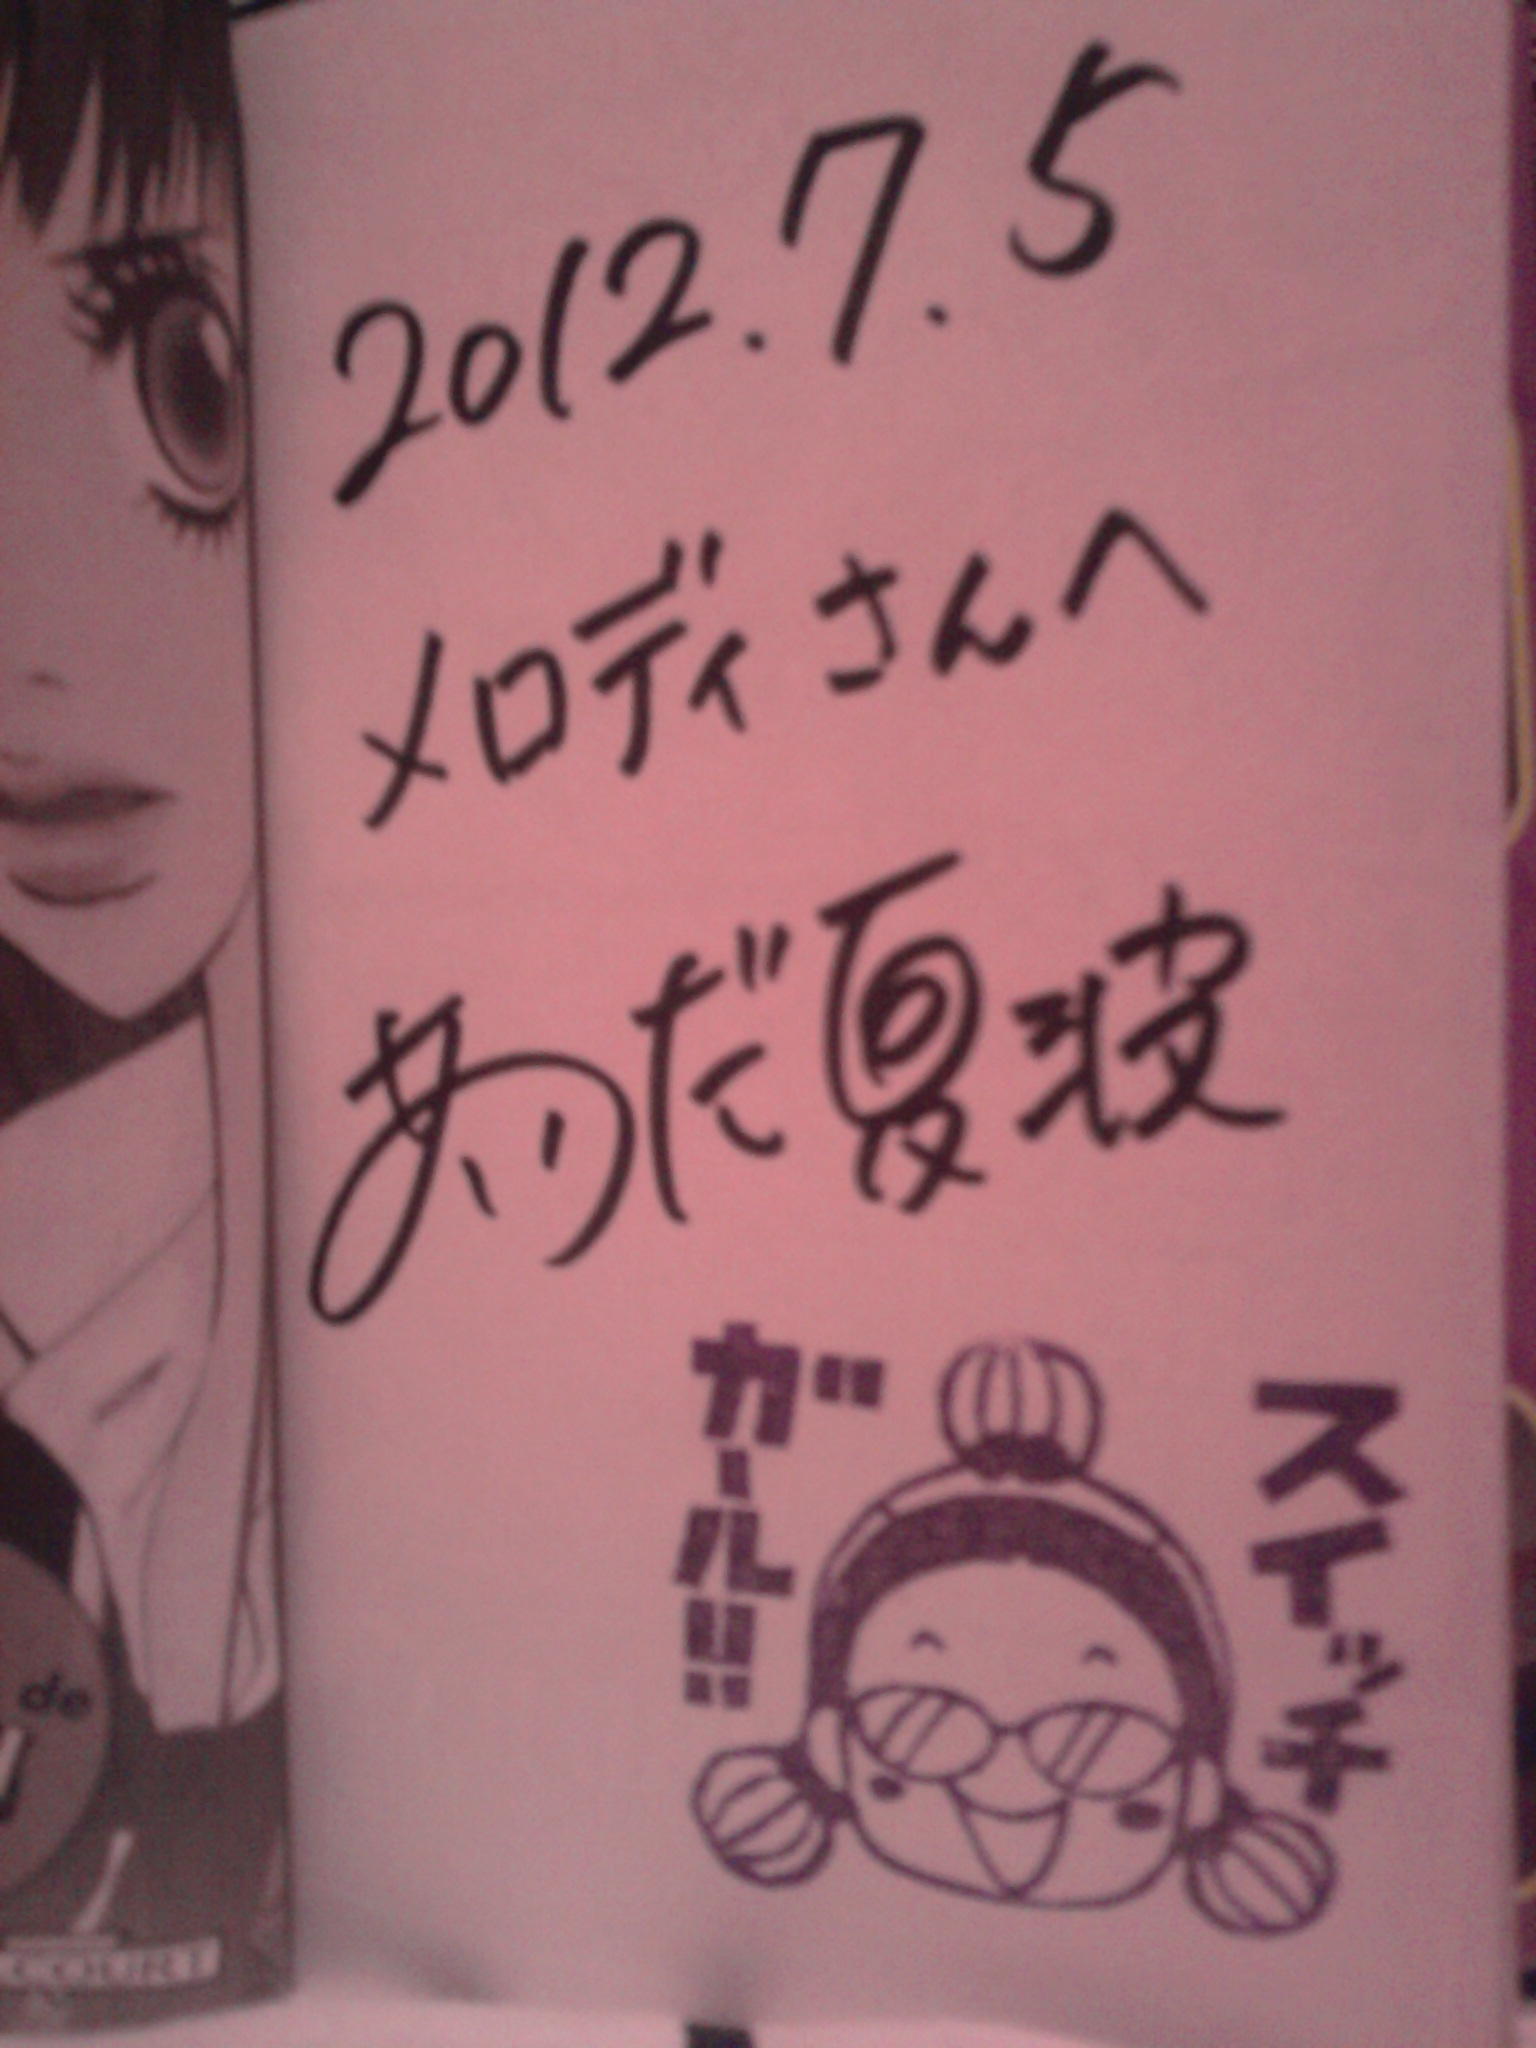 2012.7.5
メロディさんへ
あいだ夏波
スイッチ
ガール!!
de